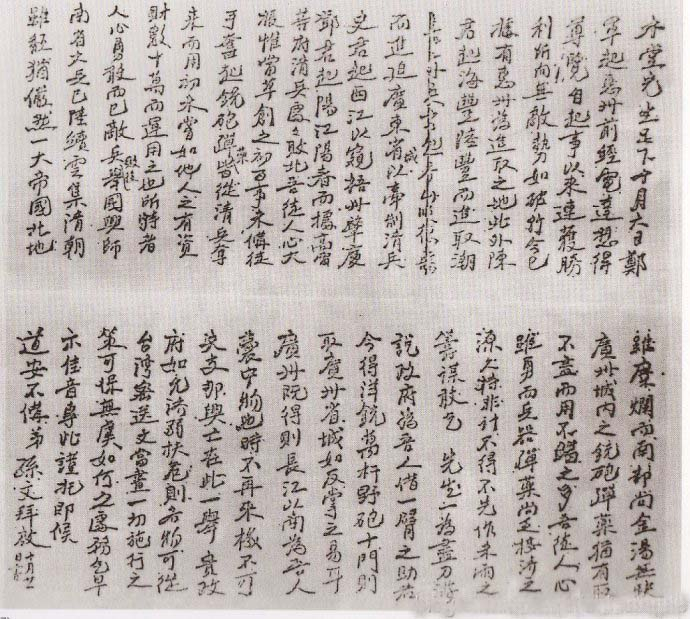 木堂先生足下十月六日鄭
軍起惠州前經電達想得
尊覽自起事以來連獲勝
利所向無敵勢如破竹今已
據有惠州為進取之地此外陳
君起海豐陸豐而進取潮
而進迫廣東省城以牽制清兵
史君起西江以窺梧州肇慶
鄧君起陽江陽春而據高雷
等府清兵處々敗北吾徒人心大
振惟當草創之初百事未備徒
手奮起銃砲彈藥皆從清兵拿
來而用初未嘗如他人之有資
財數十萬而運用之也所恃者
人心勇敢而已敵兵敗後舉國興師
南省之兵已陸續雲集清朝
雖頹猶儼然一大帝國北地
雖糜爛而南部尚金湯無缺
廣州城內之銃砲彈藥猶有取
不盡而用不竭之多吾徒人心
雖勇而兵器彈藥尚乏接濟之
源久持非計不得不先作未雨之
籌謀敢乞 先生一為盡力游
說政府為吾人借一臂之助若
今得洋銃萬杆野砲十門則
取廣州省城如反掌之易耳
廣州既得則長江以南為吾人
囊中物也時不再來機不可
失支那興亡在此一舉 貴政
府如允濟弱扶危則各物可從
台灣密送文當畫一切施行之
策可保無虞如何之處務乞早
示佳音專此謹托即候
道安不備弟 孫文拜啟 十月廿